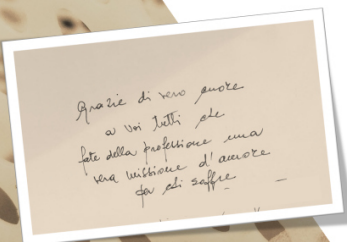 Grazie di vero cuore
a voi tutti che
fate della professione una
vera missione d'amore
per chi soffre